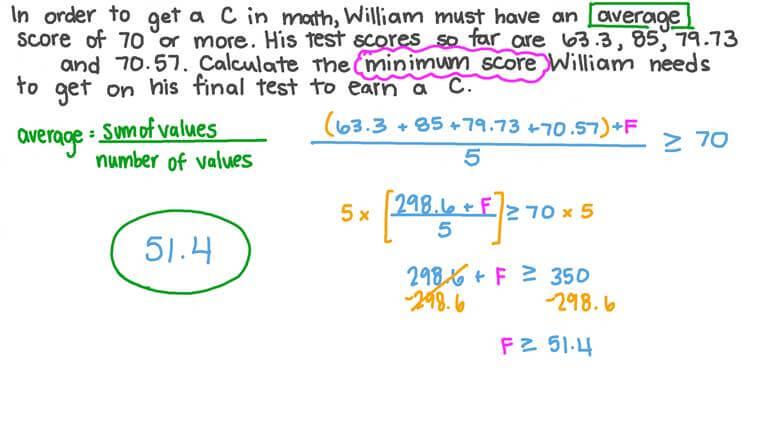 In order to get a C in math, William must have an average
score of 70 or more. His test scores so far are 63.3, 85, 79.73
and 70.57. Calculate the minimum score William needs
to get on his final test to earn a C.
average = sum of values
number of values
(63.3 + 85 + 79.73 + 70.57) + F
5
≥ 70
5 × [298.6 + F
5
] ≥ 70 × 5
51.4
298.6 + F ≥ 350
-298.6 -298.6
F ≥ 51.4